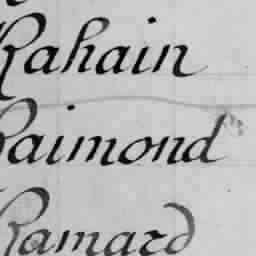 Rahain
Raimond
Ramard